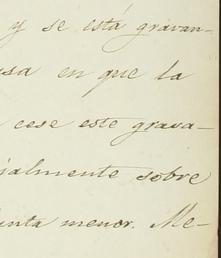 y se está gravan-
usa en que la
cese este grava-
ialmente sobre
unta menor. Me-